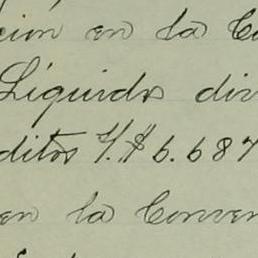 cion en la Co
Liquido div
ditos V.$ 6.687
en la Conven